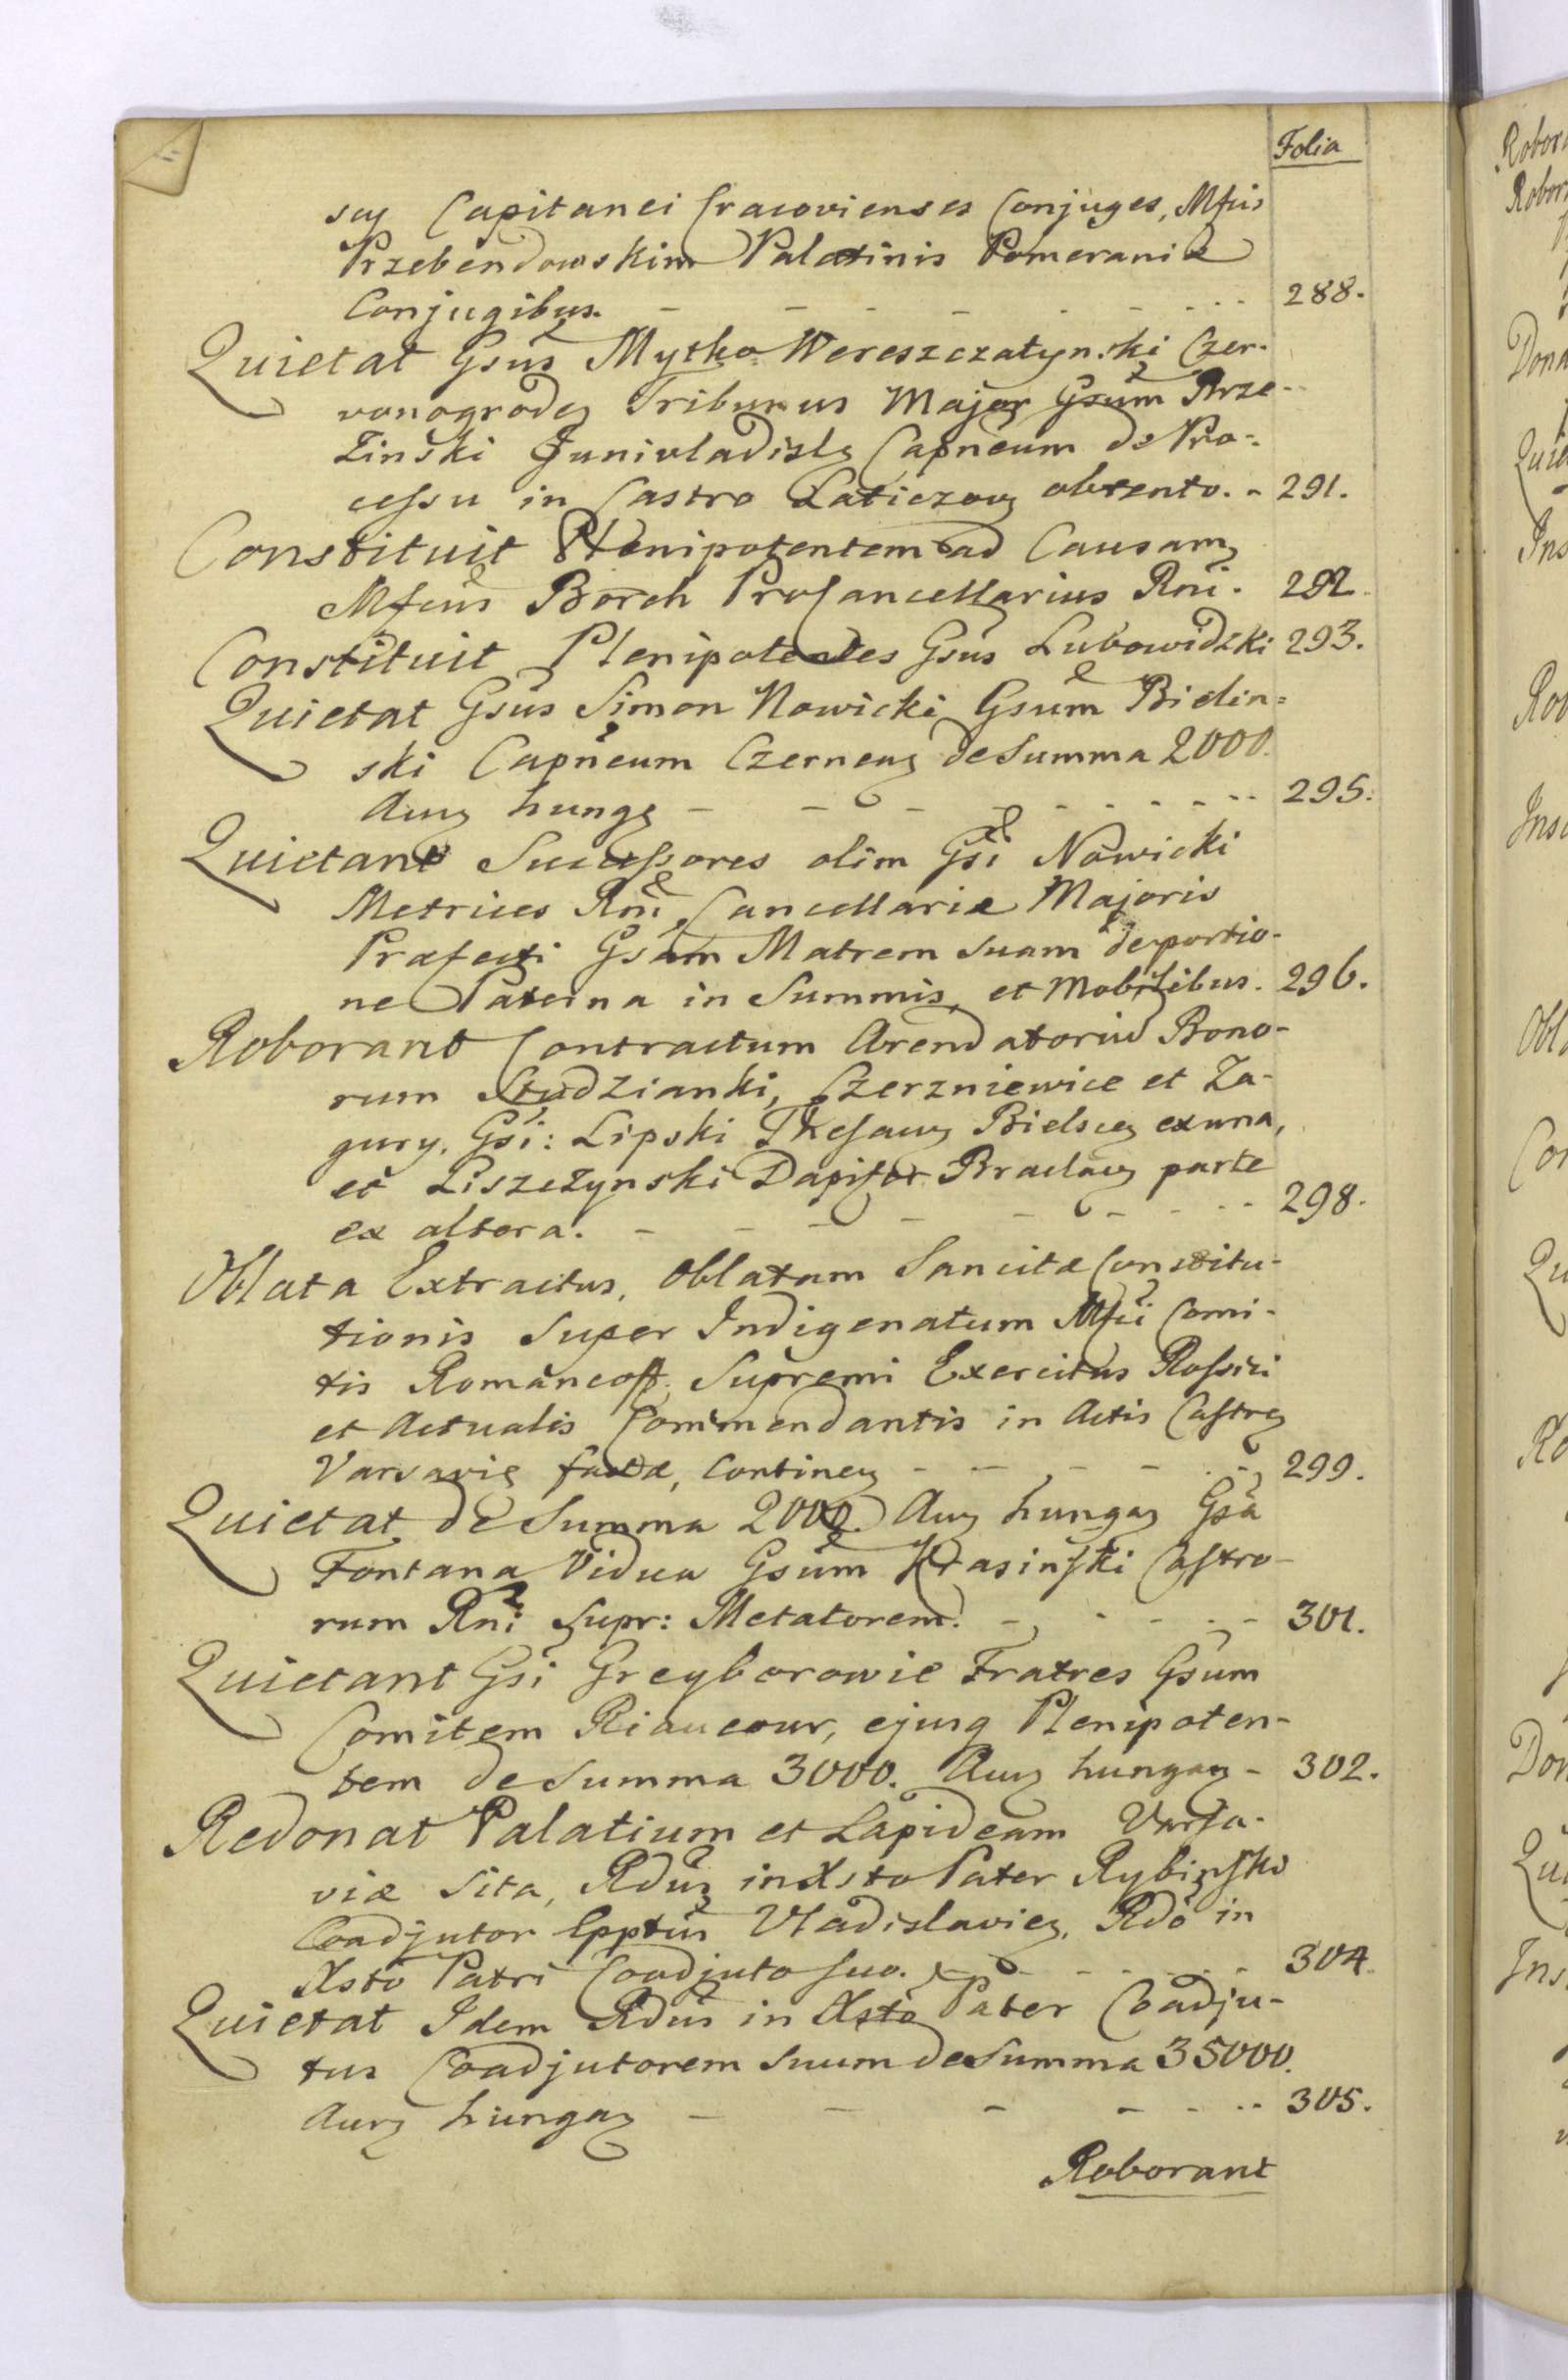 Folia
scy Capitanei Cracovienses Conjuges, Mfcis
Przebendowskim Palatinis Pomeraniæ
Conjugibus. - - - - - - 288.
Quietat Gsus Mytko Wereszczatynski Czer-
vonogrodeg Tribunus Major Gsum Brze-
zinski Junivladisly Capneum de Pro-
cessu in Castro Laticzovg obtento. - 291.
Constituit Plenipotentem ad Causam
Mfcus Borch ProCancellarius Rni. 292.
Constituit Plenipotentes Gsus Lubowidzki 293.
Quietat Gsus Simon Nowicki Gsum Bielin=
ski Capneum Czerneng de Summa 2000.
Aurg hungg - - - - - - 295.
Quietant Successores olim Gsi Nowicki
Metrices Rni Cancellariæ Majoris
Præfecti Gsam Matrem suam de portio-
ne Paterna in Summis, et Mobilibus. 296.
Roborant Contractum Arendatoriu Bono-
rum Studzianki, Czerzniewice et Za-
gury. Gsi: Lipski Thesaurg Bielsceg ex una,
et Liszczynski Dapifer Braclavg parte
ex altera. - - - - - - 298.
Oblata Extractus, Oblatam Sancitæ Constitu-
tionis Super Indigenatum Mfci Comi-
tis Romancoff. Supremi Exercitus Rossici
et Actualis Commendantis in Actis Castrg
Varsavię factæ, Contineg - - - - - 299.
Quietat de Summa 2000. Aurg hungag Gsa
Fontana Vidua Gsum Krasinski Castro-
rum Rni Supr: Metatorem. - - - - 301.
Quietant Gsi Greyborowie Fratres Gsum
Comitem Riaucour, ejusq Plenipoten-
tem de Summa 3000. Aurg hungag - 302.
Redonat Palatium et Lapideam Varsa-
viæ Sita, Rdus in Xsto Pater Rybinski
Coadjutor Epptus Vladislavieg, Rdo in
Xsto Patri Coadjuto suo. - - - - - 304.
Quietat Idem Rdus in Xsto Pater Coadju-
tus Coadjutorem suum de Summa 35000.
Aurg hungag - - - - - - 305.
Roborant